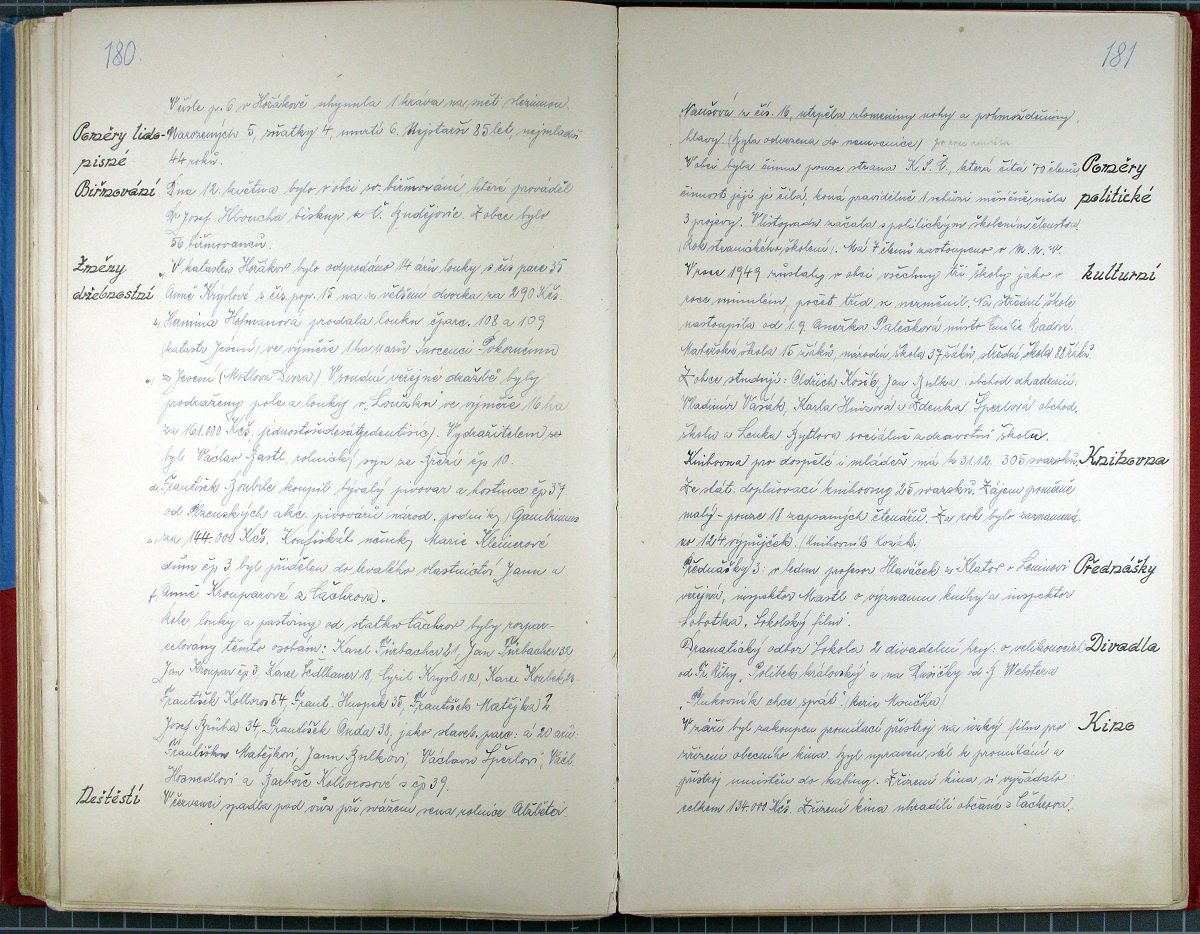 180.
V čísle p. 6 v Hořákově uhynula 1 kráva na síť slezinnou.
Poměry lido-
pisné
Narozených 5, sňatky 4, úmrtí 6. Nejstarší 85 let, nejmladší
44 roků.
Biřmování
Dne 12. května bylo v obci sv. biřmovaní které prováděl
Dr Josef Hloucha biskup z Č. Budějovic. Z obce bylo
56 biřmovanců.
Změny
držebnostní
V katastru Hořákov bylo odprodáno 14 árů louky s čís parc 35
Anně Krýslové s čís. pop. 15 na zvětšení dvorka za 290 Kčs.
Hermina Hofmanová prodala louku čparc. 108 a 109
(katastr Javení) ve výměře 1 ha arů Inocenci Pokornému
z Javení (Motlova Dvora.) V soudní veřejné dražbě byly
podraženy pole a louky v "Loužku" ve výměře 16 ha
za 161.000 Kčs. jednostošedesátjedentisíc). Vydražitelem
byl Václav Bastl, rolnický syn ze Březí čp 10.
František Boubrle koupil bývalý pivovar a hostinec čp 37
od Plzenských akc. pivovarů národ. podniky (Gambrinus
za 144.000 Kčs. Konfiskát němky Marie Kleinerové
dům čp 3 byl přidělen do trvalého vlastnictví Jann a
Anně Krouparové z Čachrova.
Role louky a pastviny od statku Čachrov byly rozpar-
celovány těmto osobám: Karel Fürbacher 21, Jan Fürbacher 32
Jan Kroupar čp 3, Karel Sedlbauer 18, Cyril Krysl 12, Karel Koubek
František Kolloros 54, Frant. Huspek 35, František Matějka 2
Josef Brůha 34, František Onda 38, jako staveb. parc: á 20 arů:
František Matějkovi, Jann Bulkovi, Václavu Šperlovi, Václ.
Hosnedlovi a Barboře Kollorosové s čp 39.
Neštěstí
V červenci spadla pod vůz při svážení sena rolnice Alžběta
181
Naušová z čís. 16, utrpěla zlomeniny nohy a pohmožděniny
hlavy. (Byla odvezena do nemocnice)
V obci byla činna pouze strana K.S.Č., která čítá 70 členů
Poměry
politické
činnost její je čilá, koná pravidelně 1 schůzi měsíčně, měla
3 projevy. V listopadu začala s politickým školením členstva
(Rok stranického školení). Má 7 členů zastoupeno v M.N.V.
V roce 1949 zůstaly v obci všechny tři školy jako v
kulturní
roce minulém, počet tříd se nezměnil. Na střední škole
nastoupila od 1. 9. Anežka Palečková místo Emilie Radové.
Mateřská škola 15 žáků, národní škola 37 žáků, střední škola 88 žáků.
Z obce studují: Oldřich Košík, Jan Bulka: obchod akademii;
Vladimír Vašák, Karla Hnizová a Zdenka Šperlová obchod.
školu a Lenka Bytlova sociálně zdravotní školu.
Knihovna pro dospělé i mládež má k 31.12. 305 svazků.
Knihovna
Ze stát. doplňovací knihovny 25 svazků. Zájem poměrně
malý - pouze 18 zapsaných čtenářů. Za rok bylo zaznamená-
no 124 výpůjček. (Knihovník Kozák.)
Přednášky 3: v lednu profesor Hlaváček z Klatov o Leninovi
Přednášky
veřejná, inspektor Mastl o významu knihy a inspektor
Sobotka, Sokolský film.
Dramatický odbor Sokola 2 divadelní hry: o velikonocích
Divadla
od Fr. Říhy, Políbek královský a na Dušičky od J Webstera
"Plukovník chce spáti" (režie Moučka)
V září byl zakoupen promítací přístroj na úzký film pro
Kino
zřízení obecního kina. Byl upraven sál k promítání a
přístroj umístěn do kabiny. Zřízení kina si vyžádalo
celkem 134.000 Kčs. Zřízení kina uhradili občané z Čachrova.